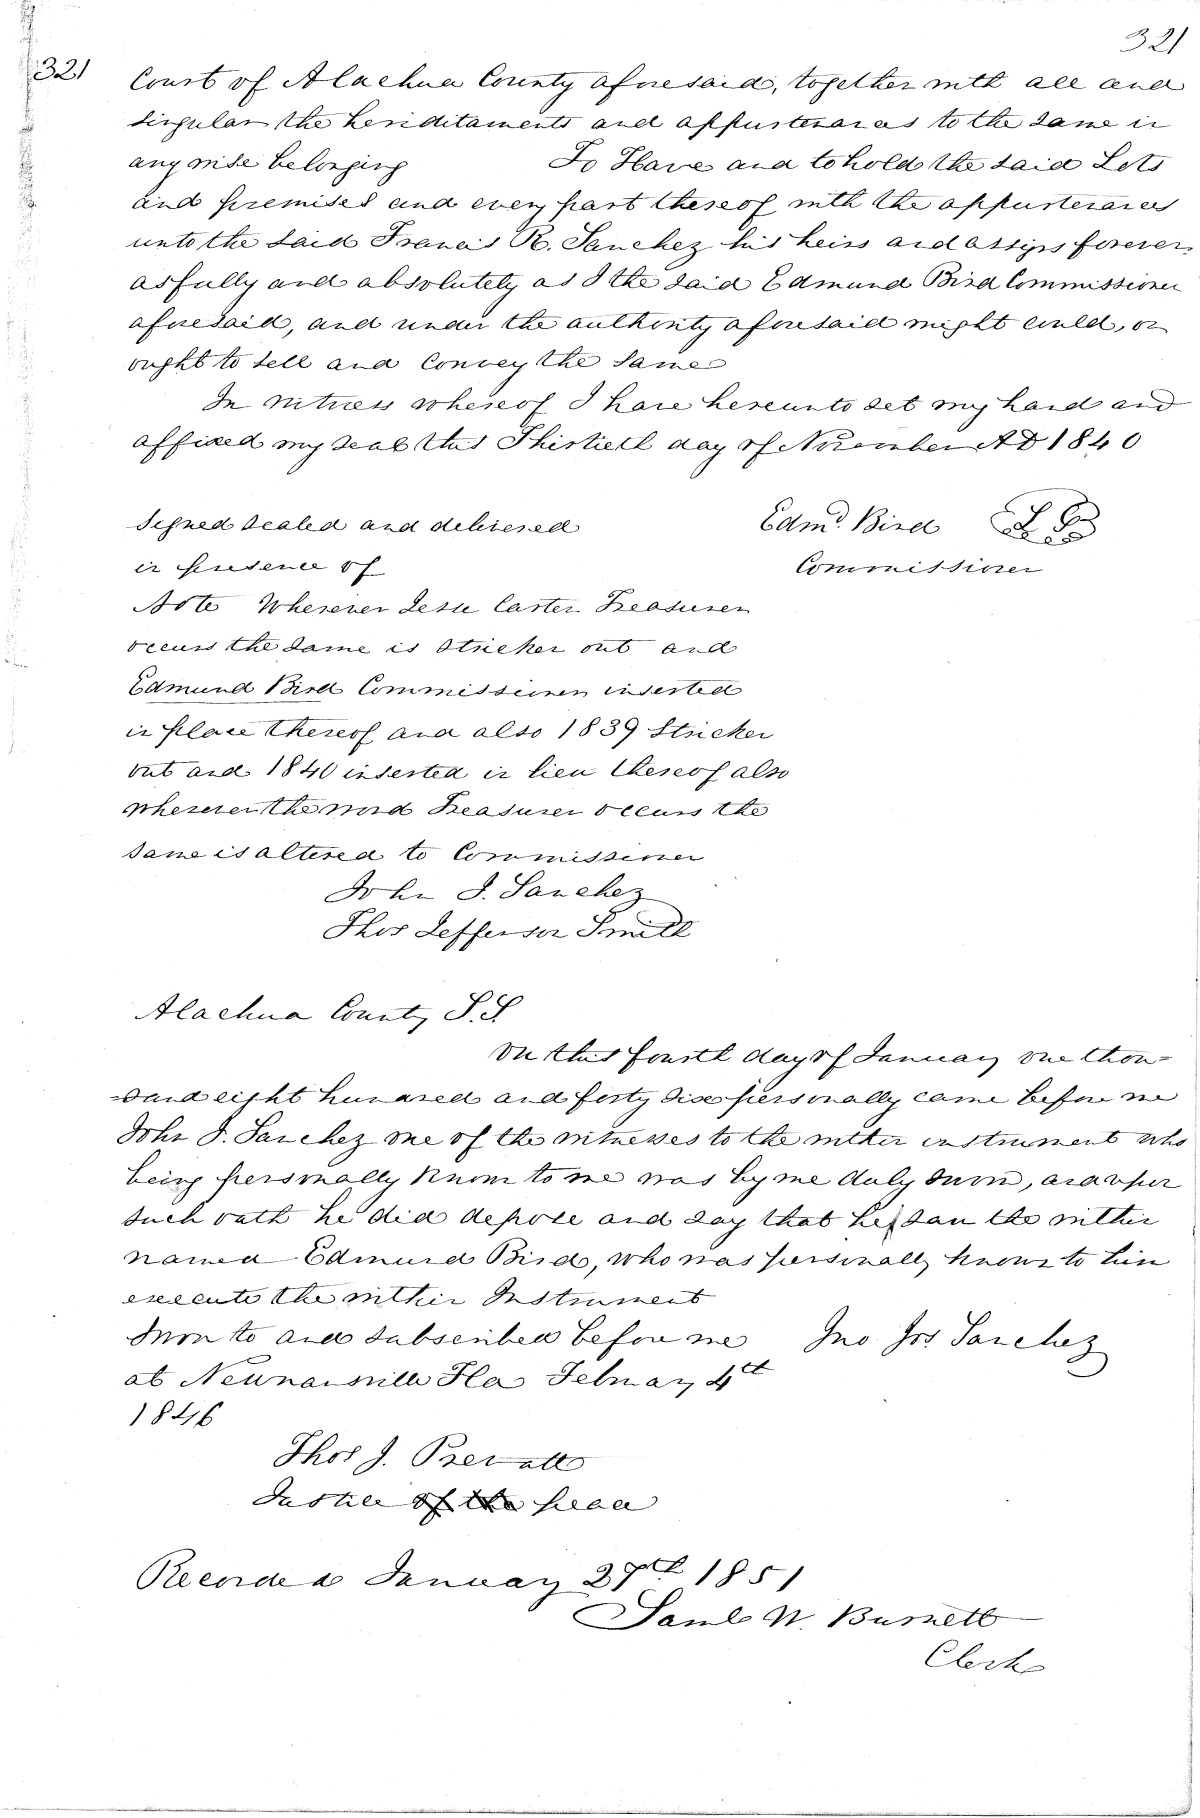 321
321
Court of Alachua County aforesaid, together with all and
singular the heriditaments and appurtenances to the same in
any wise belonging To Have and to hold the said Lots
and premises and every part thereof with the appurtenances
unto the said Francis R. Sanchez his heirs and assigns forever
as fully and absolutely as I the said Edmund Bird Commissioner
aforesaid, and under the authority aforesaid might could, or
ought to sell and convey the same
In witness whereof I have hereunto set my hand and
affixed my seal this Thirtieth day of November AD 1840
Signed sealed and delivered Edmd. Bird L S
in presence of Commissioner
Note Wherever Jesse Carter Treasurer
occurs the same is stricken out and
Edmund Bird Commissioner inserted
in place thereof and also 1839 stricken
out and 1840 inserted in lieu thereof also
wherever the word Treasurer occurs the
same is altered to Commissioner
John J. Sanchez
Thos Jefferson Smith
Alachua County S.S.
On this fourth day of January one thou=
=sand eight hundred and forty six personally came before me
John J. Sanchez one of the witnesses to the within instrument who
being personally known to me was by me duly sworn, and upon
such oath he did depose and say that he saw the within
named Edmund Bird, who was personally known to him
execute the within Instrument
Sworn to and subscribed before me Jno Jos Sanchez
at Newnansville Fla February 4th
1846
Thos J. Prevatt
Justice of the peace
Recorded January 27th 1851
Saml W. Burnett
Clerk